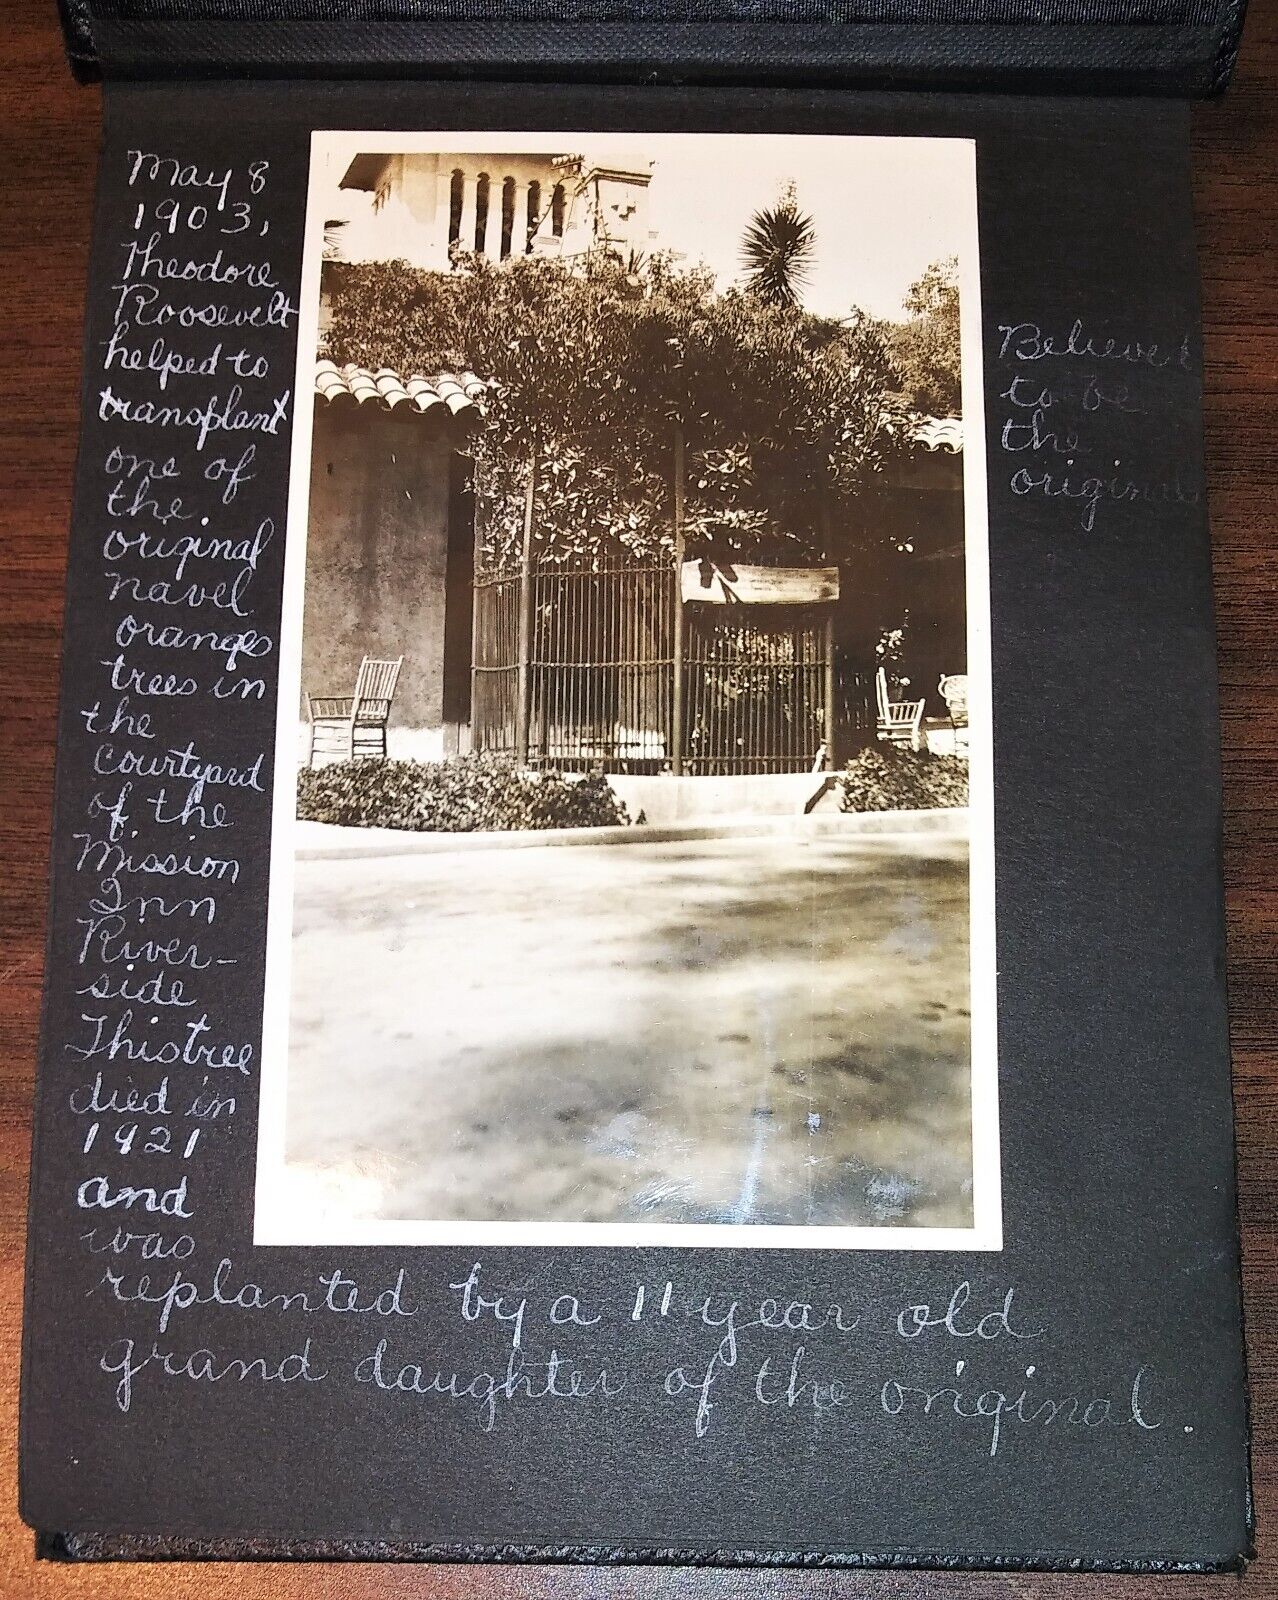 May 8
1903,
Theodore
Roosevelt
helped to
transplant
one of
the
original
navel
oranges
trees in
the
courtyard
of the
Mission
Inn
River-
side
This tree
died in
1921
and
was
replanted by a 11 year old
grand daughter of the original.
Believed
to be
the
original